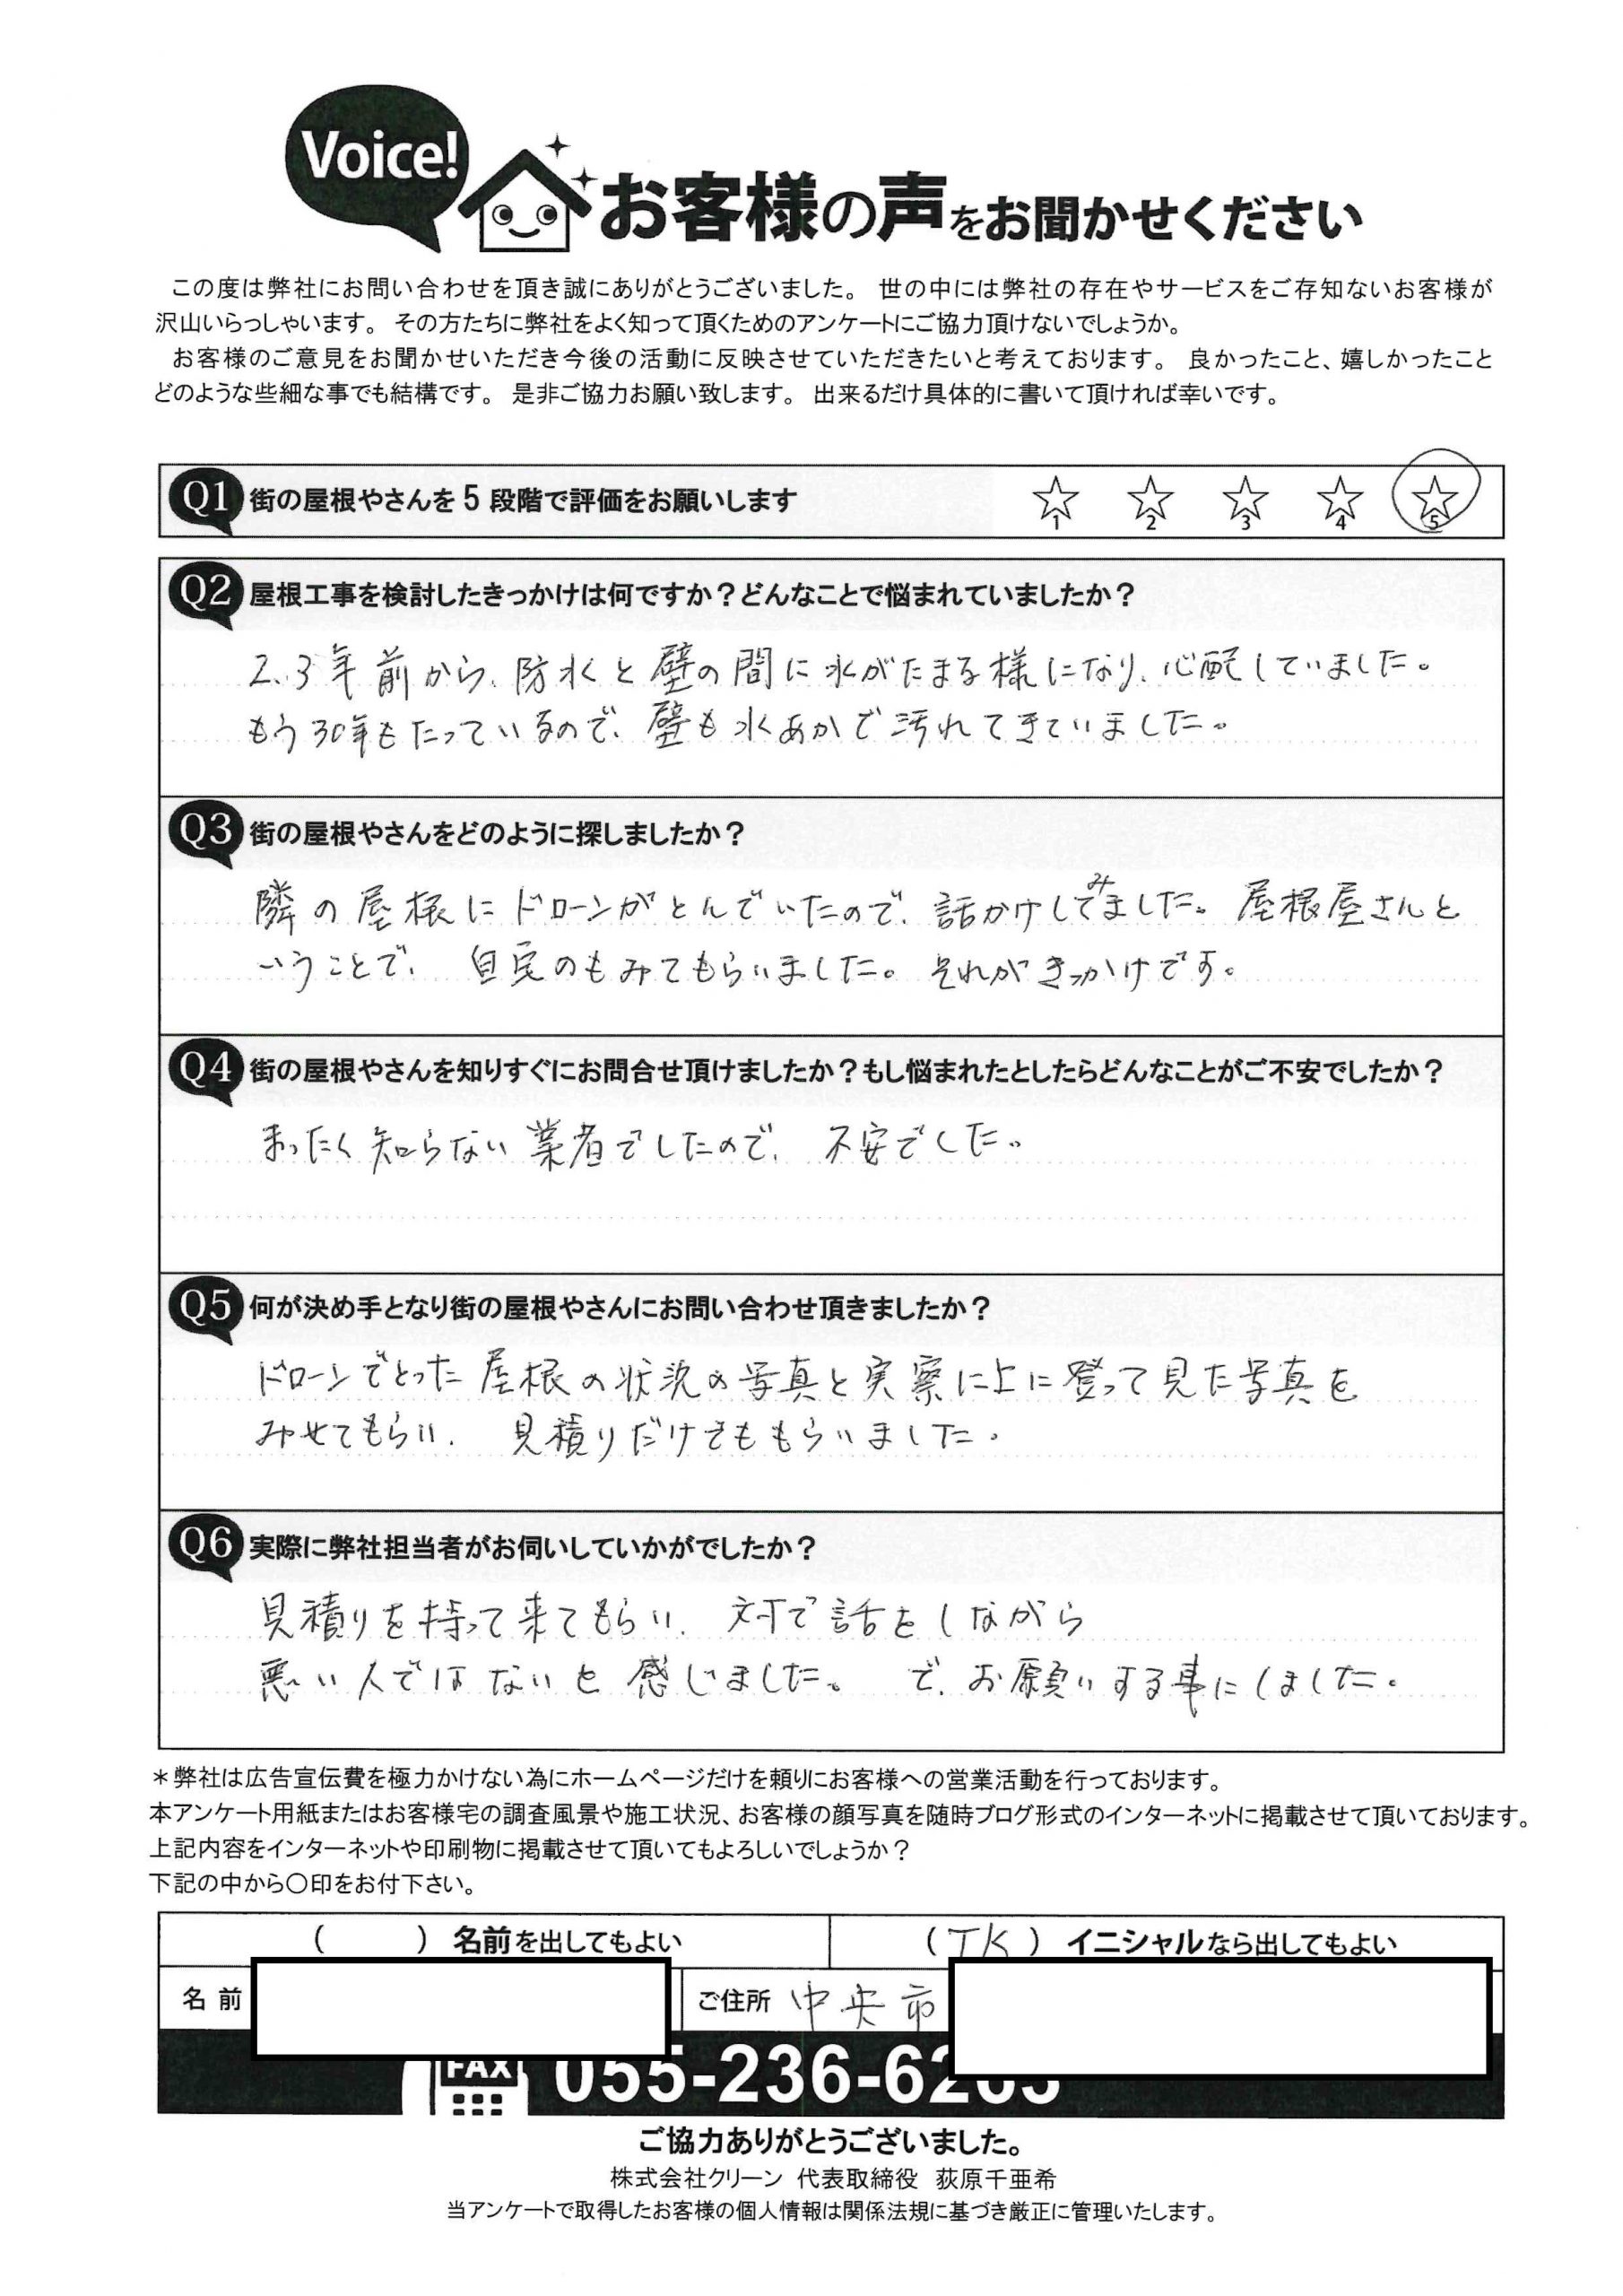 Voice!
お客様の声をお聞かせください
この度は弊社にお問い合わせを頂き誠にありがとうございました。 世の中には弊社の存在やサービスをご存知ないお客様が
沢山いらっしゃいます。 その方たちに弊社をよく知って頂くためのアンケートにご協力頂けないでしょうか。
お客様のご意見をお聞かせいただき今後の活動に反映させていただきたいと考えております。 良かったこと、嬉しかったこと
どのような些細な事でも結構です。 是非ご協力お願い致します。 出来るだけ具体的に書いて頂ければ幸いです。
Q1 街の屋根やさんを5段階で評価をお願いします 1 2 3 4 5
Q2 屋根工事を検討したきっかけは何ですか？どんなことで悩まれていましたか？
2、3年前から、防水と壁の間に水がたまる様になり、心配していました。
もう30年もたっているので、壁も水あかで汚れてきていました。
Q3 街の屋根やさんをどのように探しましたか？
隣の屋根にドローンがとんでいたので、話かけしてみました。屋根屋さんと
いうことで、 自宅のもみてもらいました。それがきっかけです。
Q4 街の屋根やさんを知りすぐにお問合せ頂けましたか？もし悩まれたとしたらどんなことがご不安でしたか？
まったく知らない業者でしたので、 不安でした。
Q5 何が決め手となり街の屋根やさんにお問い合わせ頂きましたか？
ドローンでとった屋根の状況の写真と実際に上に登って見た写真を
みせてもらい、 見積りだけでももらいました。
Q6 実際に弊社担当者がお伺いしていかがでしたか？
見積りを持って来てもらい、対で話をしながら
悪い人ではないと感じました。 で、お願いする事にしました。
＊弊社は広告宣伝費を極力かけない為にホームページだけを頼りにお客様への営業活動を行っております。
本アンケート用紙またはお客様宅の調査風景や施工状況、お客様の顔写真を随時ブログ形式のインターネットに掲載させて頂いております。
上記内容をインターネットや印刷物に掲載させて頂いてもよろしいでしょうか？
下記の中から○印をお付下さい。
（ ）名前を出してもよい （TK）イニシャルなら出してもよい
名前 ご住所 中央市
FAX 055-236-6
ご協力ありがとうございました。
株式会社クリーン 代表取締役 荻原千亜希
当アンケートで取得したお客様の個人情報は関係法規に基づき厳正に管理いたします。